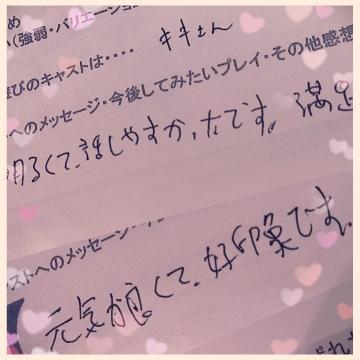 め
い(強弱・バリエーション
遊びのキャストは・・・・ キキさん
へのメッセージ・今後してみたいプレイ・その他感想
明るくて、話しやすかったです。満足
ストへのメッセージ・今
元気が良くて、好印象です。